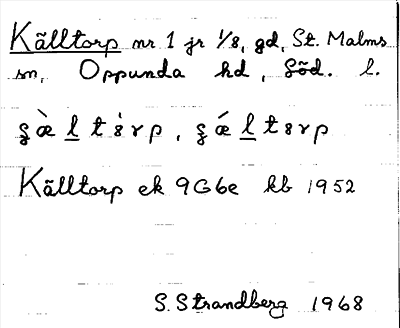 Källtorp nr 1 jr 1/8, gd, St. Malms
sn, Oppunda hd, Söd. l.
Källtorp ek 9G6e kb 1952
S. Strandberg 1968